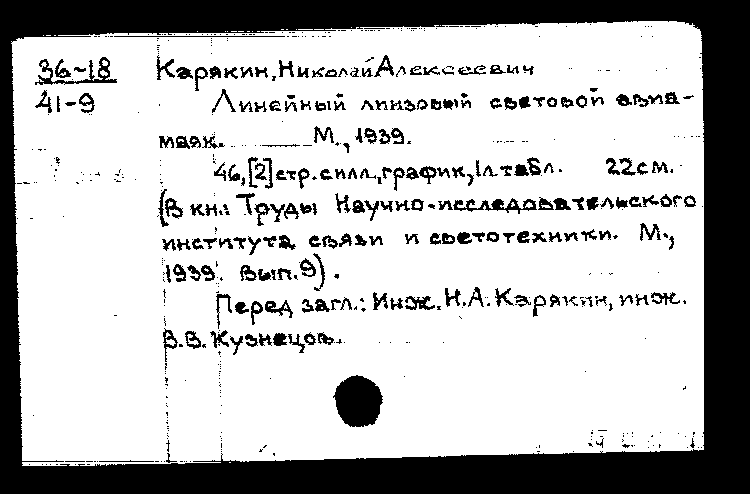 36-18 Карякин, Николай Алексеевич
41-9 Линейный линзовый световой авиа-
маяк. М., 1939.
46,[2] стр. с илл., график, 1 л. табл. 22 см.
(В кн.: Труды Научно-исследовательского
института связи и светотехники. М.,
1939. Вып. 9).
Перед загл.: Инж. Н.А. Карякин, инж.
В.В. Кузнецов.